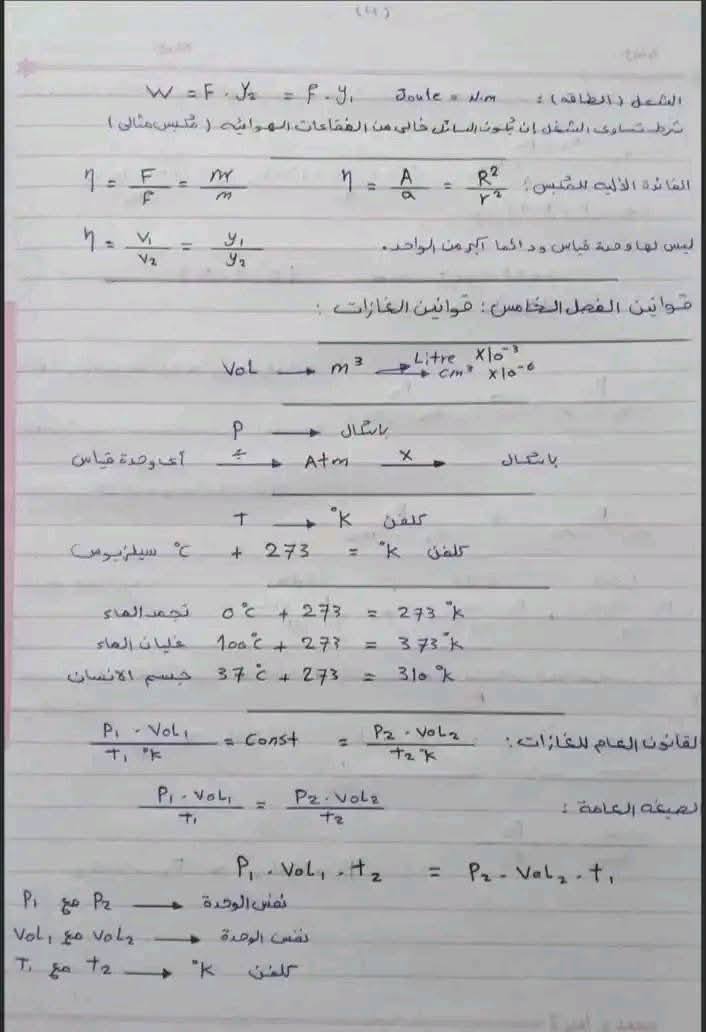 (٤)
الشغل (الطاقة): W = F . y₂ = f . y₁ Joule = N.m
شرط تساوي الشغل ان يكون السائل خالي من الفقاعات الهوائية (مكبس مثالي)
الفائدة الآلية للمكبس: η = A/a = R²/r² η = F/f = M/m
ليس لها وحدة قياس ودائما أكبر من الواحد. η = v₁/v₂ = y₁/y₂
قوانين الفصل الخامس: قوانين الغازات:
VoL → m³ → Litre x10⁻³
→ cm³ x10⁻⁶
P → باسكال
أي وحدة قياس ÷ → Atm x → باسكال
T → °K كلفن
سيلزيوس °C + 273 = °K كلفن
تجمد الماء 0°C + 273 = 273 °K
غليان الماء 100°C + 273 = 373 °K
جسم الانسان 37°C + 273 = 310 °K
القانون العام للغازات: P₁ . VoL₁ / T₁ °K = Const = P₂ . VoL₂ / T₂ °K
الصيغة العامة: P₁ . VoL₁ / t₁ = P₂ . VoL₂ / t₂
P₁ . VoL₁ . t₂ = P₂ . VoL₂ . t₁
P₁ مع P₂ → نفس الوحدة
VoL₁ مع VoL₂ → نفس الوحدة
T₁ مع t₂ → °K كلفن